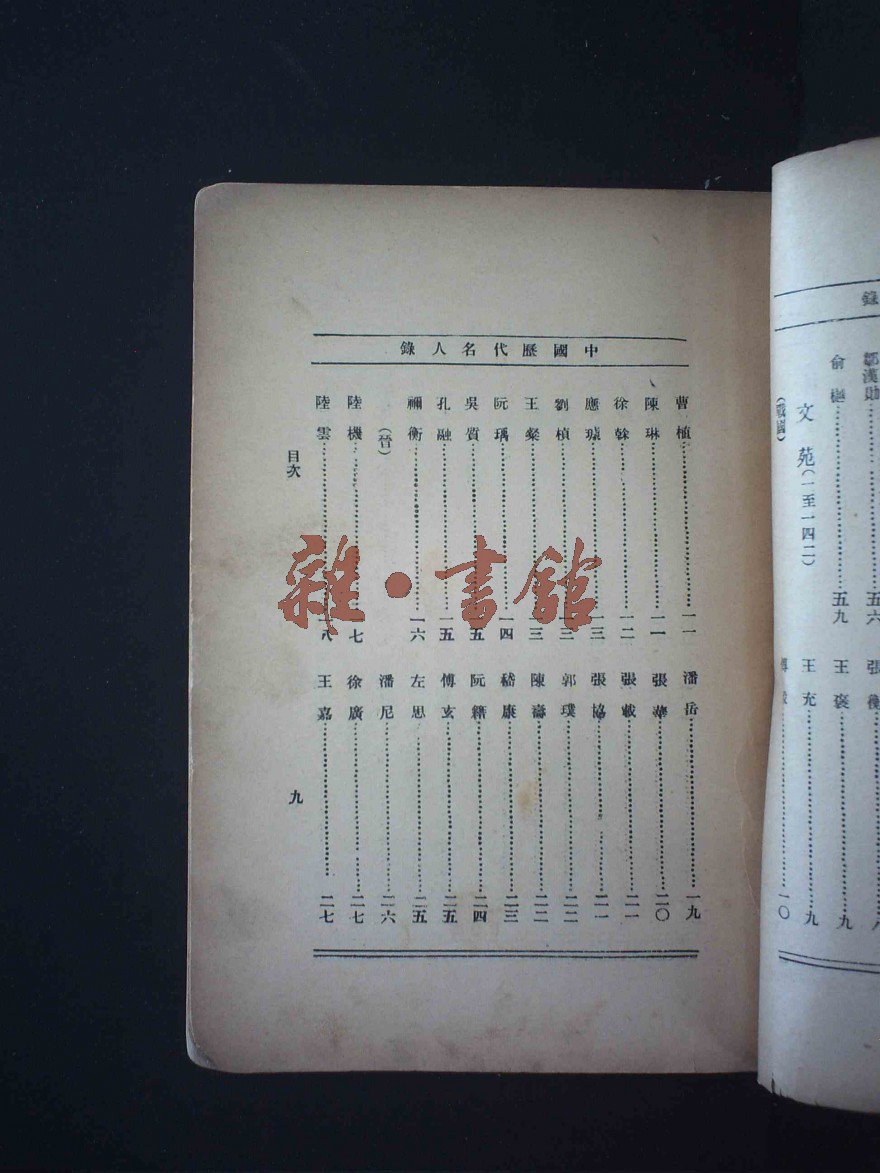 錄
鄒漢勛……五六
俞樾……五九
文苑(一至一四二)
(戰國)
張衡……八
王褒……九
王充……九
傅毅……一〇
中國歷代名人錄
曹植……一一
陳琳……一一
徐榦……一二
應璩……一三
劉楨……一三
王粲……一三
阮瑀……一四
吳質……一五
孔融……一五
禰衡……一六
(晉)
陸機……一七
陸雲……一八
潘岳……一九
張華……二〇
張載……二一
張協……二一
郭璞……二二
陳壽……二二
嵇康……二三
阮籍……二四
傅玄……二五
左思……二五
潘尼……二六
徐廣……二七
王嘉……二七
目次
九
雜·書館